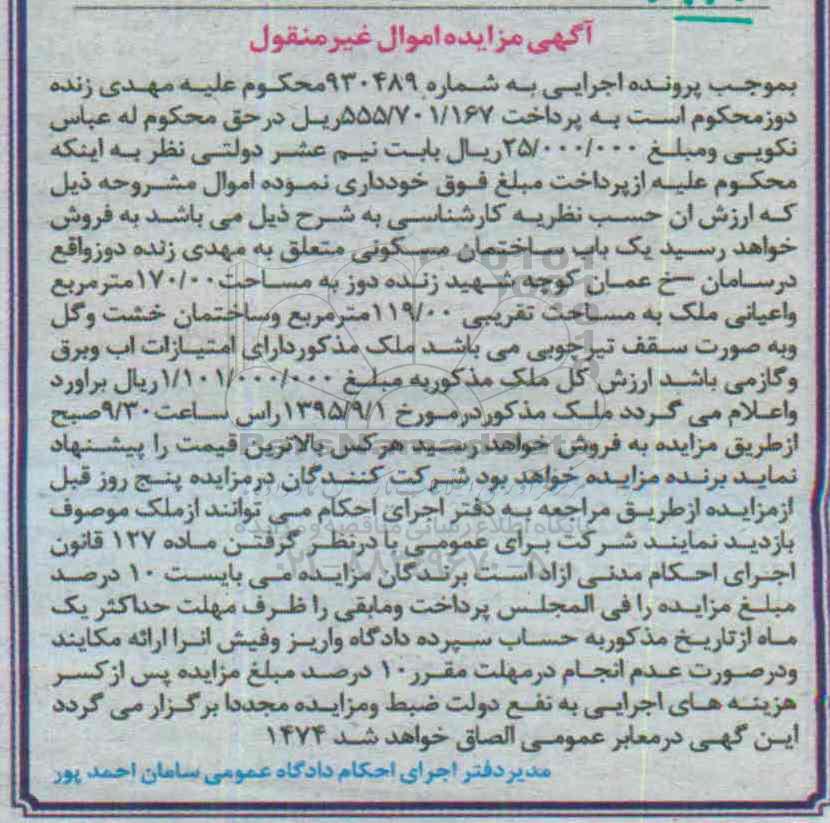 آگهی مزایده اموال غیرمنقول
بموجب پرونده اجرایی به شماره ۹۳۰۴۸۹محکوم علیه مهدی زنده
دوزمحکوم است به پرداخت ۵۵۵/۷۰۱/۱۶۷ریل درحق محکوم له عباس
نکویی ومبلغ ۲۵/۰۰۰/۰۰۰ریال بابت نیم عشر دولتی نظر به اینکه
محکوم علیه ازپرداخت مبلغ فوق خودداری نموده اموال مشروحه ذیل
که ارزش ان حسب نظریه کارشناسی به شرح ذیل می باشد به فروش
خواهد رسید یک باب ساختمان مسکونی متعلق به مهدی زنده دوزواقع
درسامان خ عمان کوچه شهید زنده دوز به مساحت۱۷۰/۰۰مترمربع
واعیانی ملک به مساحت تقریبی ۱۱۹/۰۰مترمربع وساختمان خشت وگل
وبه صورت سقف تیرچوبی می باشد ملک مذکوردارای امتیازات اب وبرق
وگازمی باشد ارزش کل ملک مذکوربه مبلغ ۱/۱۰۱/۰۰۰/۰۰۰ریال براورد
واعلام می گردد ملک مذکوردرمورخ ۱۳۹۵/۹/۱راس ساعت۹/۳۰صبح
ازطریق مزایده به فروش خواهد رسید هرکس بالاترین قیمت را پیشنهاد
نماید برنده مزایده خواهد بود شرکت کنندگان درمزایده پنج روز قبل
ازمزایده ازطریق مراجعه به دفتر اجرای احکام می توانند ازملک موصوف
بازدید نمایند شرکت برای عمومی با درنظر گرفتن ماده ۱۲۷ قانون
اجرای احکام مدنی ازاد است برندگان مزایده می بایست ۱۰ درصد
مبلغ مزایده را فی المجلس پرداخت ومابقی را ظرف مهلت حداکثر یک
ماه ازتاریخ مذکوربه حساب سپرده دادگاه واریز وفیش انرا ارائه مکایند
ودرصورت عدم انجام درمهلت مقرر۱۰ درصد مبلغ مزایده پس ازکسر
هزینه های اجرایی به نفع دولت ضبط ومزایده مجددا برگزار می گردد
این گهی درمعابر عمومی الصاق خواهد شد ۱۴۷۴
مدیردفتر اجرای احکام دادگاه عمومی سامان احمد پور